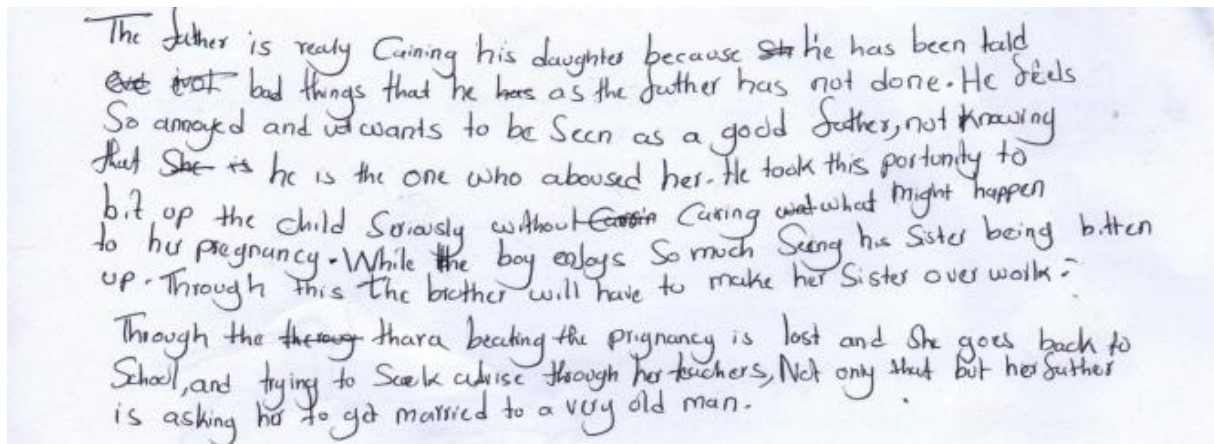 The father is realy Caining his daughter because he has been tald
bad things that he has as the father has not done. He feels
So annoyed and wants to be Seen as a good father, not Knowing
that She is he is the one who aboused her. He took this portunity to
bit up the child Seriously without Caring what might happen
to her pregnancy. While the boy enjoys So much Seeing his Sister being bitten
up. Through this the brother will have to make her Sister over work.
Through the thara beating the prignancy is lost and She goes back to
School, and trying to Seek advise through her teachers, Not only that but her father
is asking her to get married to a very old man.